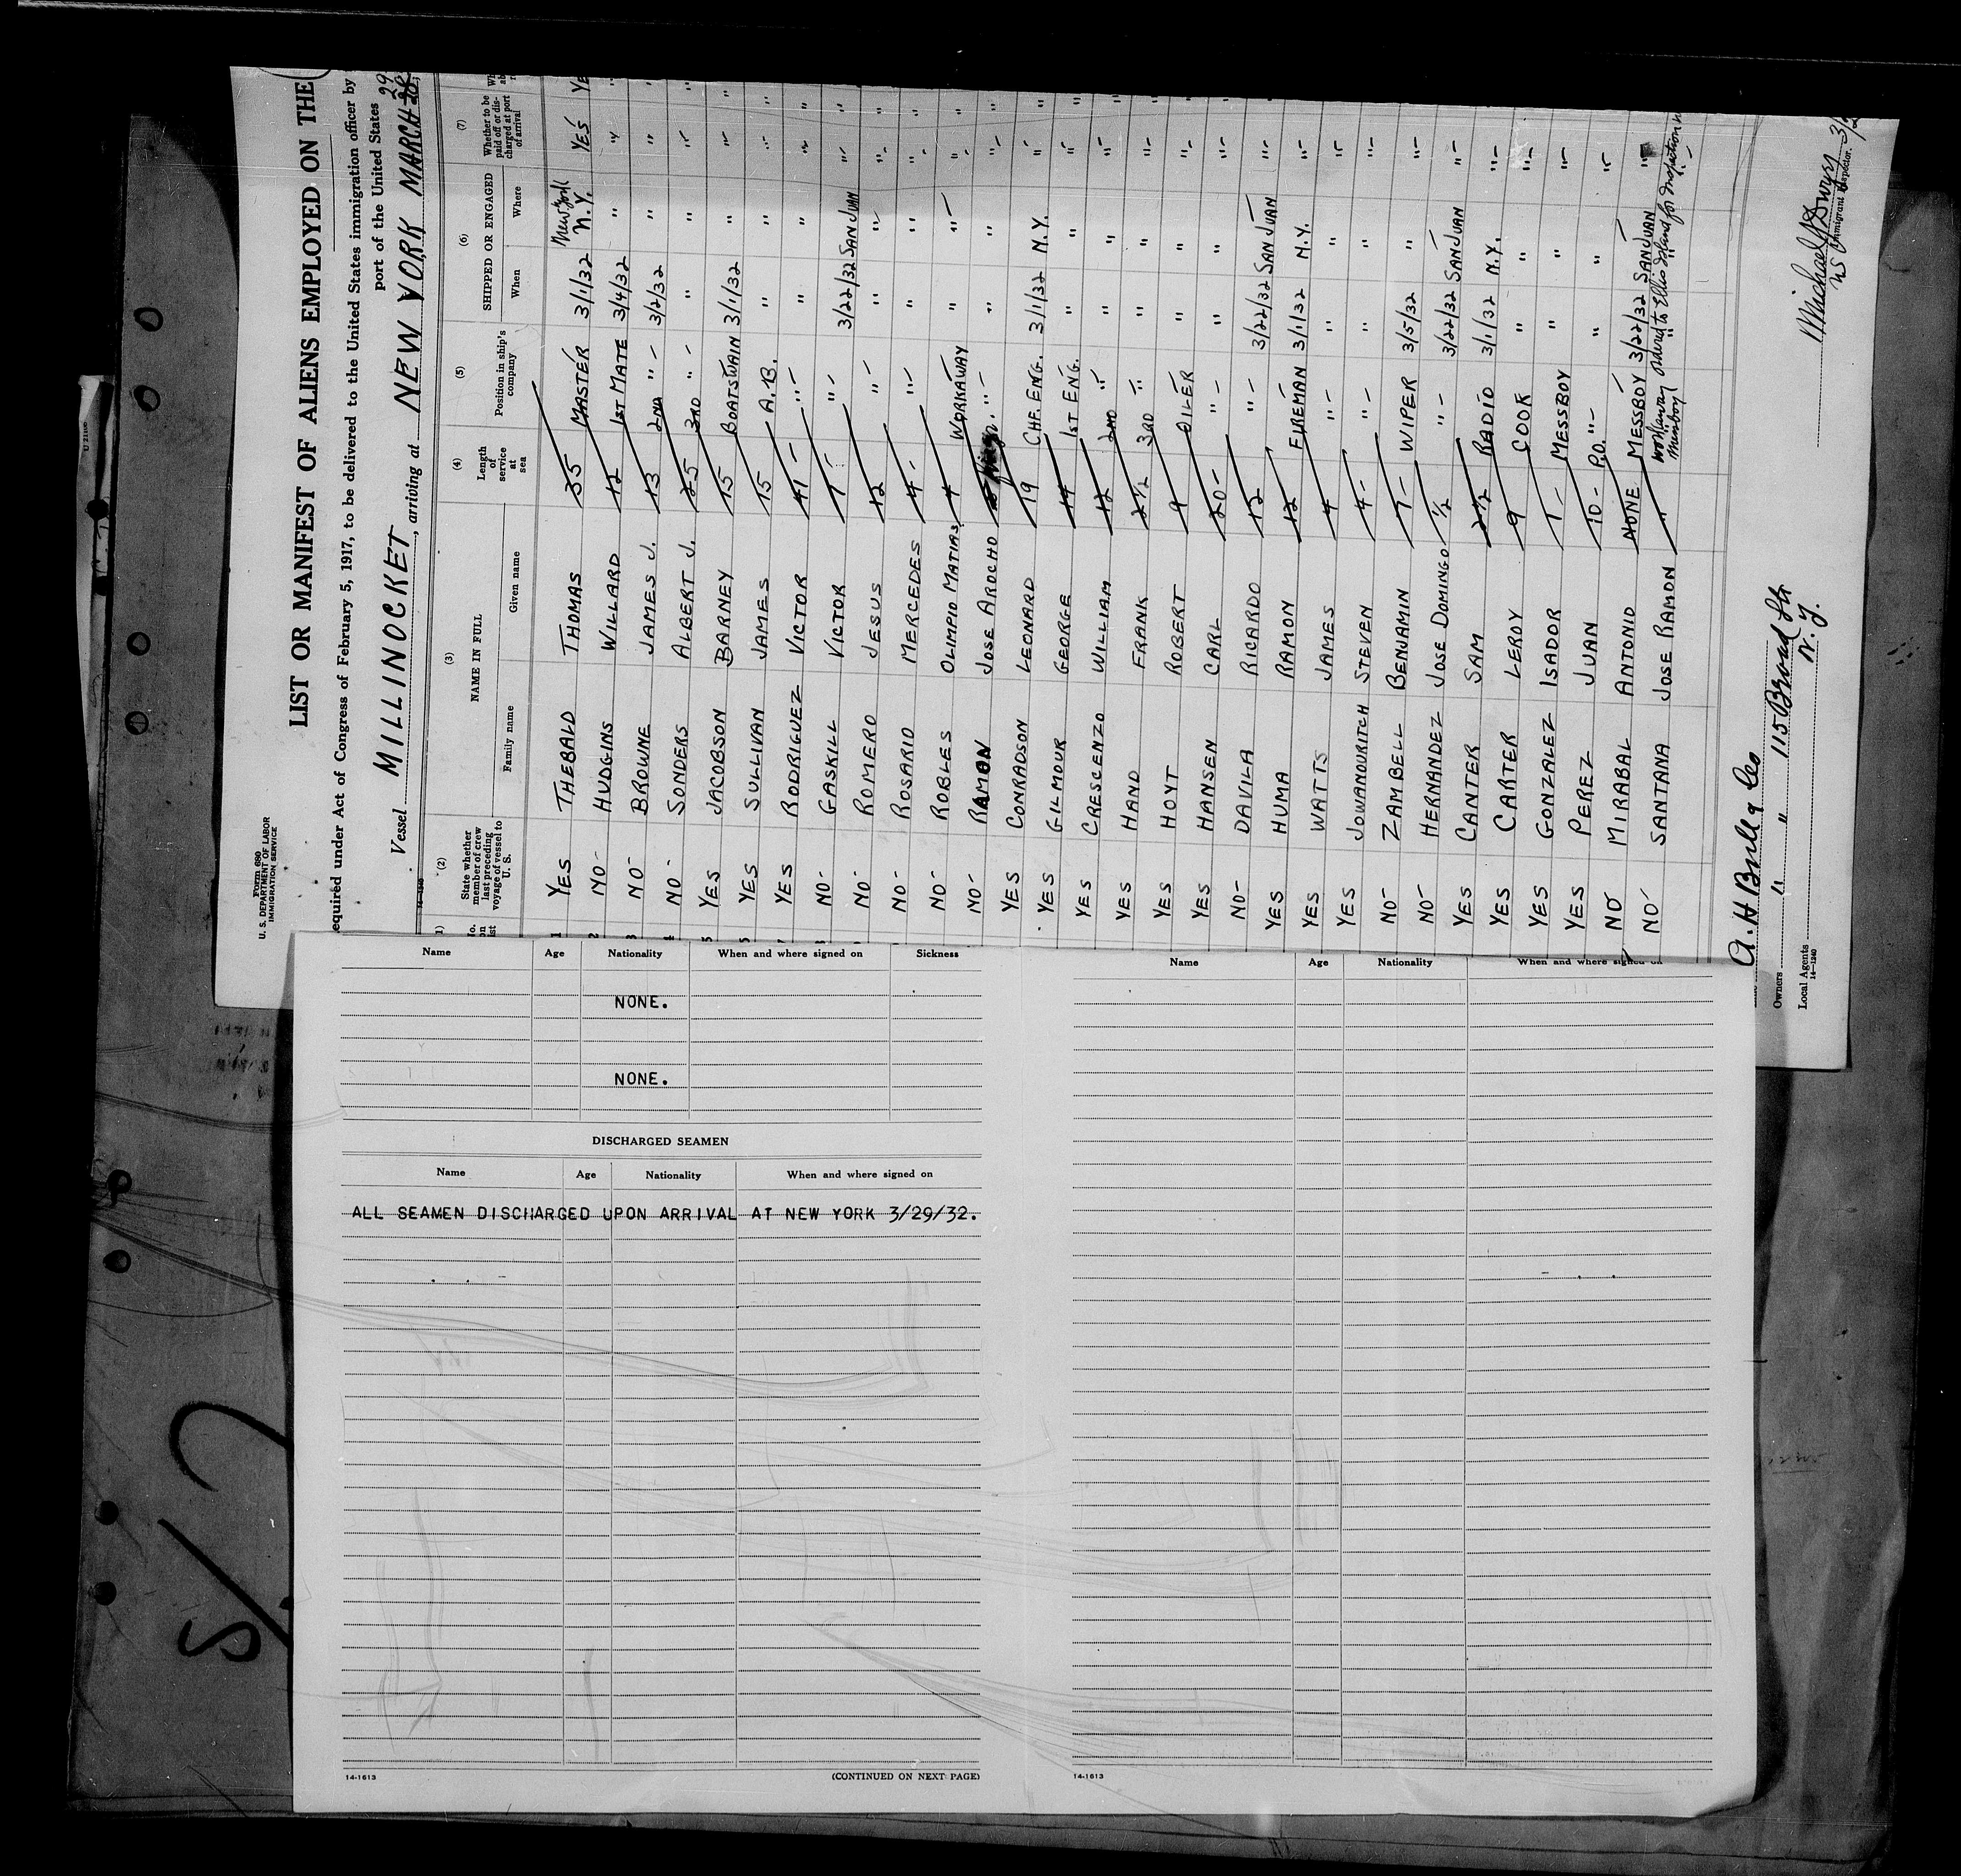 Form 680
U. S. DEPARTMENT OF LABOR
IMMIGRATION SERVICE
LIST OR MANIFEST OF ALIENS EMPLOYED ON THE
equired under Act of Congress of February 5, 1917, to be delivered to the United States immigration officer by
port of the United States
Vessel MILLINOCKET, arriving at NEW YORK MARCH 29
(2) (3) (4) (5) (6) (7)
State whether member of crew last preceding voyage of vessel to U. S.
NAME IN FULL
Family name Given name
Length of service at sea
Position in ship's company
SHIPPED OR ENGAGED
When Where
Whether to be paid off or discharged at port of arrival
1 YES THEBALD THOMAS 35 MASTER 3/1/32 New York N.Y. YES YE
2 NO- HUDGINS WILLARD 12 1ST MATE 3/4/32 " "
3 NO- BROWNE JAMES J. 13 2ND "- 3/2/32 " "
4 NO- SONDERS ALBERT J. 25 3RD "- " " "
5 YES JACOBSON BARNEY 15 BOATSWAIN 3/1/32 " "
YES SULLIVAN JAMES 15 A.B. " " "
YES RODRIGUEZ VICTOR "- " " "
NO- GASKILL VICTOR "- 3/22/32 SAN JUAN "-
NO- ROMERO JESUS 12 "- " " "-
NO- ROSARIO MERCEDES 4- "- " " "-
NO- ROBLES OLIMPIO MATIAS WORKAWAY " "- "-
NO- RAMON JOSE AROCHO "- " " "-
YES CONRADSON LEONARD 19 CHF. ENG. 3/1/32 N.Y. "-
YES GILMOUR GEORGE 14 1ST ENG. " " "-
YES CRESCENZO WILLIAM 12 2ND "- " " "-
YES HAND FRANK 2½ 3RD "- " " "-
YES HOYT ROBERT 9 OILER " " "-
YES HANSEN CARL 20- "- " " "-
NO- DAVILA RICARDO 12 "- 3/22/32 SAN JUAN "-
YES HUMA RAMON 12 FIREMAN 3/1/32 N.Y. "-
YES WATTS JAMES 4 "- " " "-
YES JOWANOURITCH STEVEN 4- "- " " "-
NO- ZAMBELL BENJAMIN 7- WIPER 3/5/32 " "-
NO- HERNANDEZ JOSE DOMINGO ½ "- 3/22/32 SAN JUAN "-
YES CANTER SAM 2½ RADIO 3/1/32 N.Y. "-
YES CARTER LEROY 9 COOK " " "-
YES GONZALEZ ISADOR 1- MESSBOY " " "-
YES PEREZ JUAN 10- P.O. "- " " "-
NO MIRABAL ANTONIO NONE MESSBOY 3/22/32 SAN JUAN "-
NO- SANTANA JOSE RAMON " workaway messboy ordered to Ellis Island for inspection
A. H Bull & Co
Owners " " 115 Broad St
Local Agents N.Y.
14-1240
Michael J Dwyer
US Immigrant Inspector.
Name Age Nationality When and where signed on Sickness
NONE.
NONE.
DISCHARGED SEAMEN
Name Age Nationality When and where signed on
ALL SEAMEN DISCHARGED UPON ARRIVAL AT NEW YORK 3/29/32.
14-1613 (CONTINUED ON NEXT PAGE)
Name Age Nationality When and where signed on
14-1613